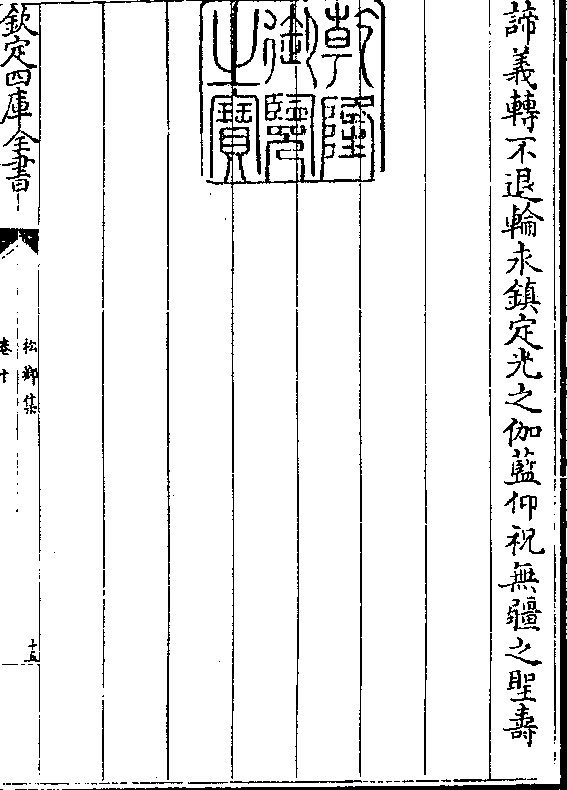 諦義轉不退輪永鎮定光之伽藍仰祝無疆之聖壽
乾隆
御覽
之寶
欽定四庫全書
松鄉集
卷十
十五